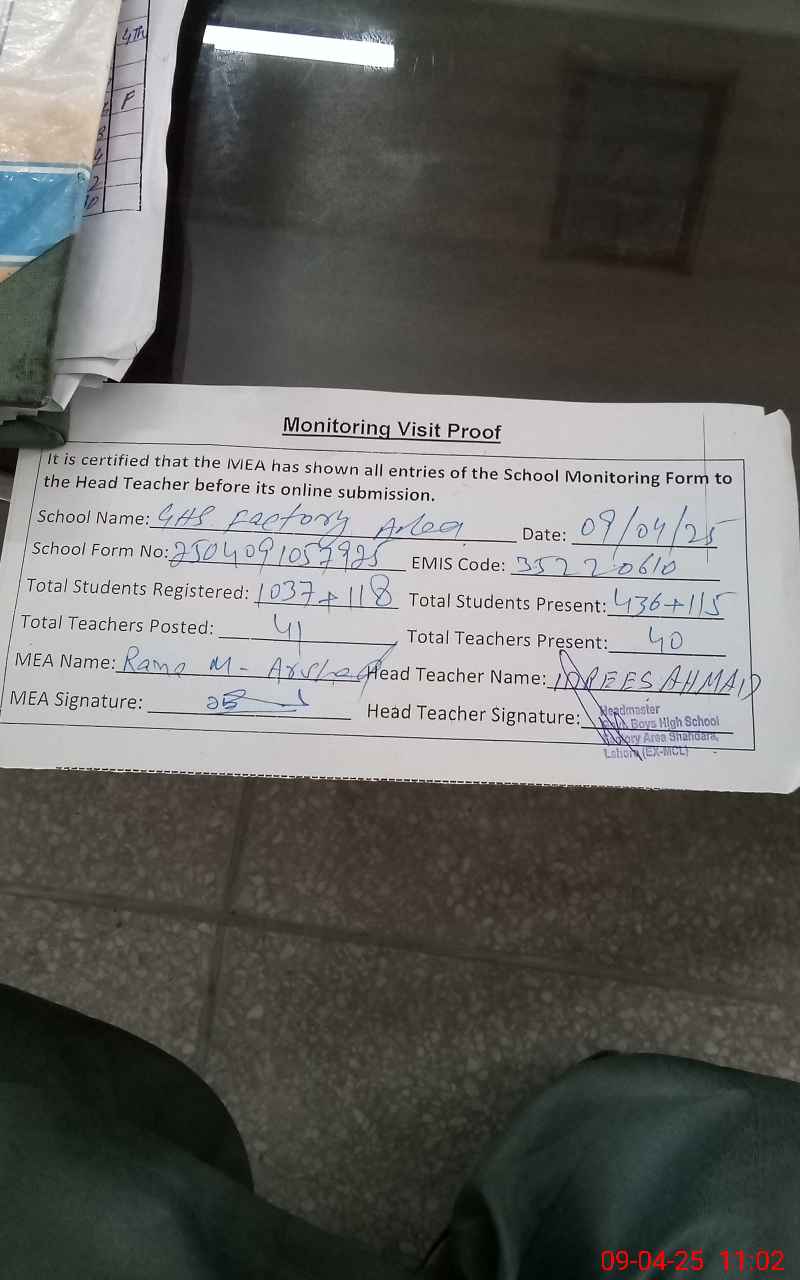 4th
F
Monitoring Visit Proof
It is certified that the MEA has shown all entries of the School Monitoring Form to
the Head Teacher before its online submission.
School Name: GHS Factory Area Date: 09/04/25
School Form No: 2504091057925 EMIS Code: 35220610
Total Students Registered: 1037+118 Total Students Present: 436+115
Total Teachers Posted: 41 Total Teachers Present: 40
MEA Name: Rana M- Arshad Head Teacher Name: IDREES AHMAD
MEA Signature: Head Teacher Signature:
Headmaster
Boys High School
Factory Area Shahdara,
Lahore (EX-MCL)
09-04-25 11:02